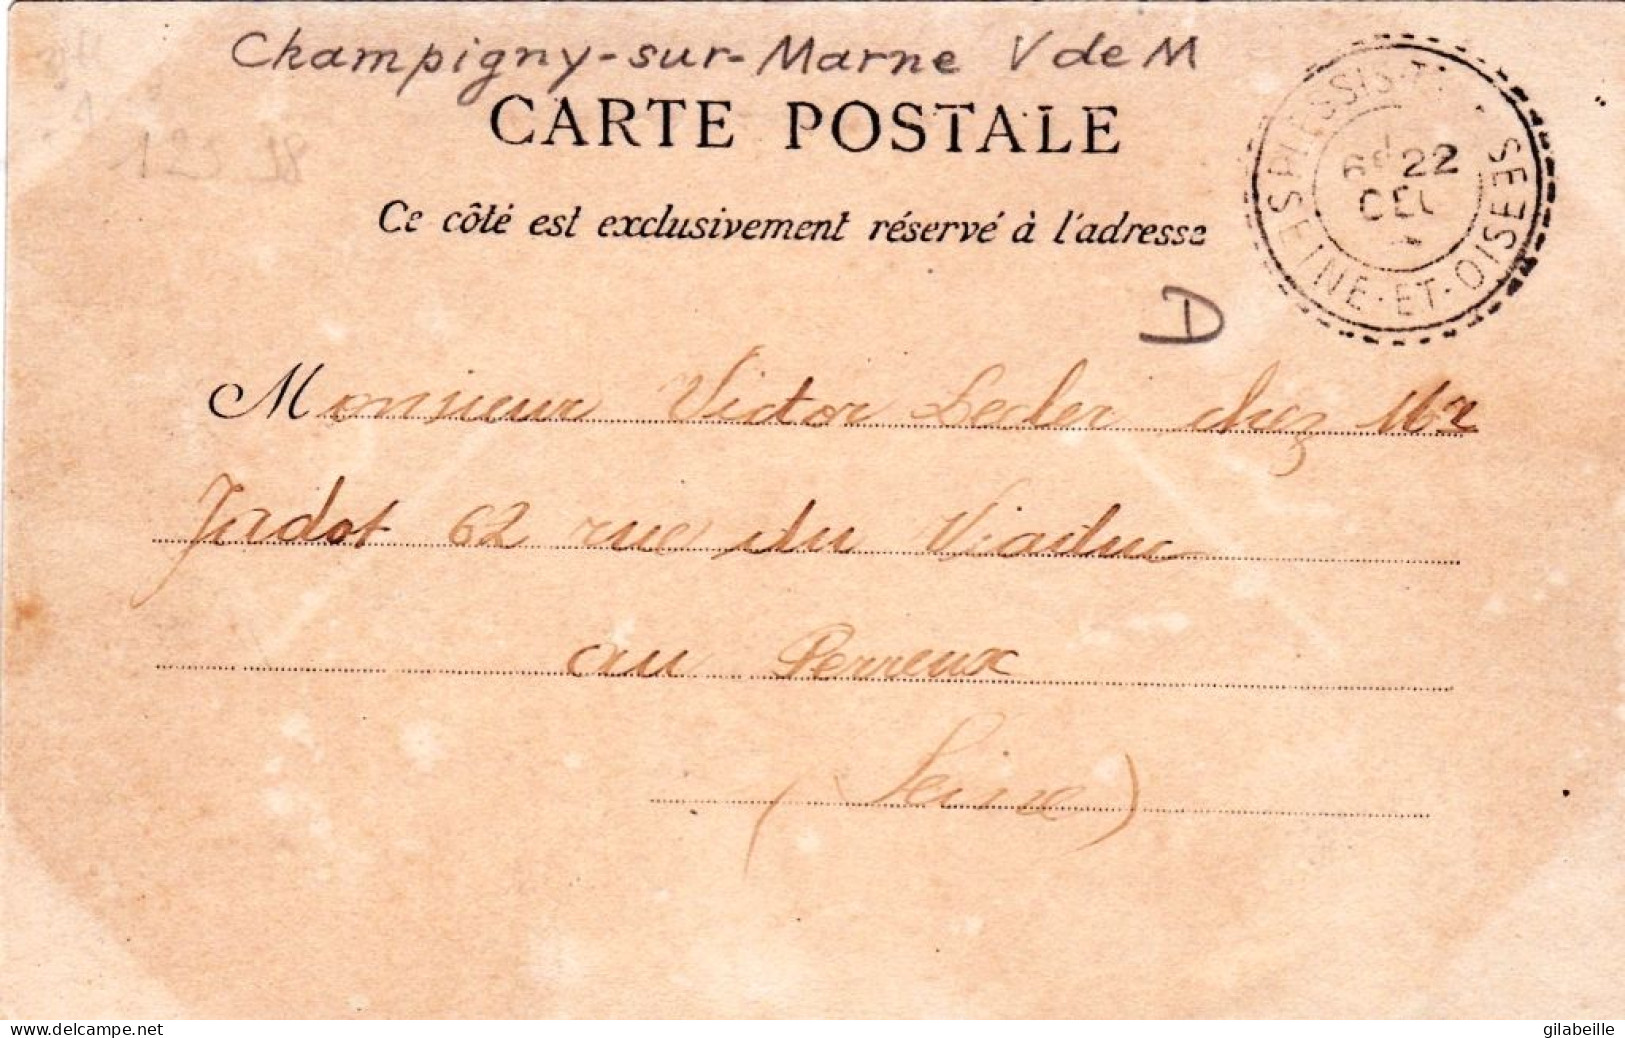 Champigny-sur-Marne V de M
CARTE POSTALE
Ce côté est exclusivement réservé à l'adresse
PLESSIS
6e 22
SEINE-ET-OISE
D
Monsieur Victor Lecler chez Mr
Jadot 62 rue du Viaduc
au Perreux
(Seine)
www.delcampe.net
gilabeille